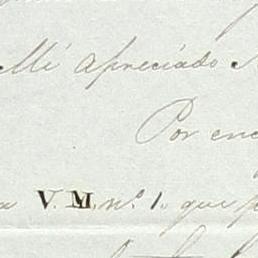 Mi Apreciado
Por en
V. M. n.º 1. que